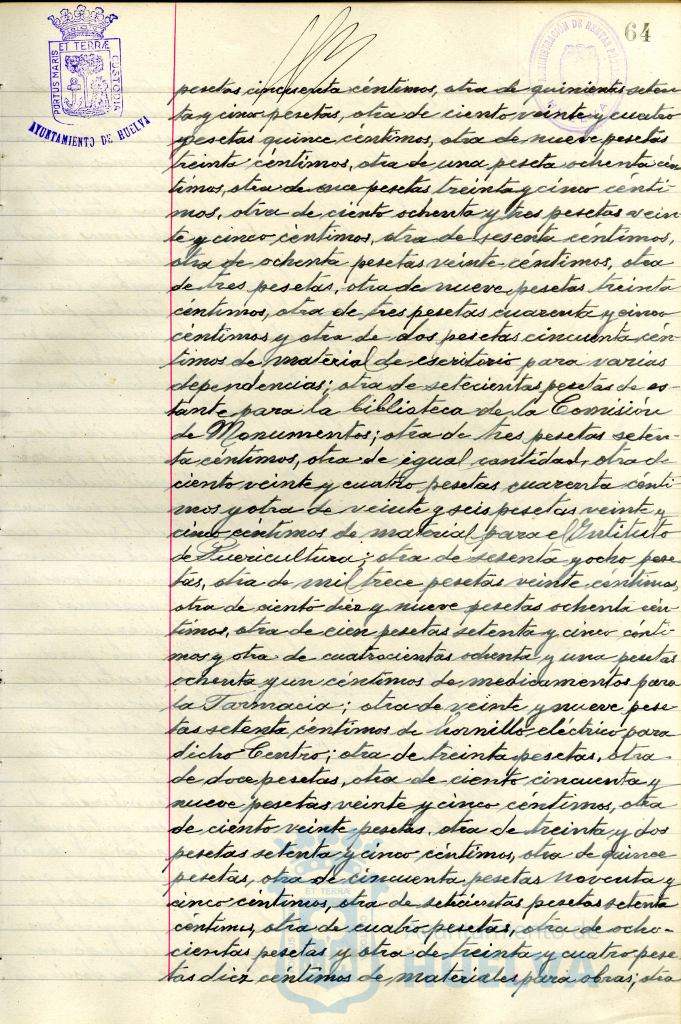 64
PORTUS MARIS ET TERRÆ CUSTODIA
AYUNTAMIENTO DE HUELVA
pesetas cincuenta céntimos, otra de quinientas seten-
ta y cinco pesetas, otra de ciento veinte y cuatro
pesetas quince céntimos, otra de nueve pesetas
treinta céntimos, otra de una peseta ochenta cén-
timos, otra de once pesetas treinta y cinco cénti-
mos, otra de ciento ochenta y tres pesetas vein-
te y cinco céntimos, otra de sesenta céntimos,
otra de ochenta pesetas veinte céntimos, otra
de tres pesetas, otra de nueve pesetas treinta
céntimos, otra de tres pesetas cuarenta y cinco
céntimos y otra de dos pesetas cincuenta cén-
timos de material de escritorio para varias
dependencias; otra de setecientas pesetas de es-
tante para la biblioteca de la Comisión
de Monumentos; otra de tres pesetas seten-
ta céntimos, otra de igual cantidad, otra de
ciento veinte y cuatro pesetas cuarenta cénti-
mos y otra de veinte y seis pesetas veinte y
cinco céntimos de material para el Instituto
de Puericultura; otra de sesenta y ocho pese-
tas, otra de mil trece pesetas veinte céntimos,
otra de ciento diez y nueve pesetas ochenta cén-
timos, otra de cien pesetas setenta y cinco cénti-
mos y otra de cuatrocientas ochenta y una pesetas
ochenta y un céntimos de medicamentos para
la Farmacia; otra de veinte y nueve pese-
tas setenta céntimos de hornillo eléctrico para
dicho Centro; otra de treinta pesetas, otra
de doce pesetas, otra de ciento cincuenta y
nueve pesetas veinte y cinco céntimos, otra
de ciento veinte pesetas, otra de treinta y dos
pesetas setenta y cinco céntimos, otra de quince
pesetas, otra de cincuenta pesetas noventa y
cinco céntimos, otra de pesetas setenta
céntimos, otra de cuatro pesetas, otra de ocho-
cientas pesetas y otra de treinta y cuatro pese-
tas diez céntimos de materiales para obras; otra